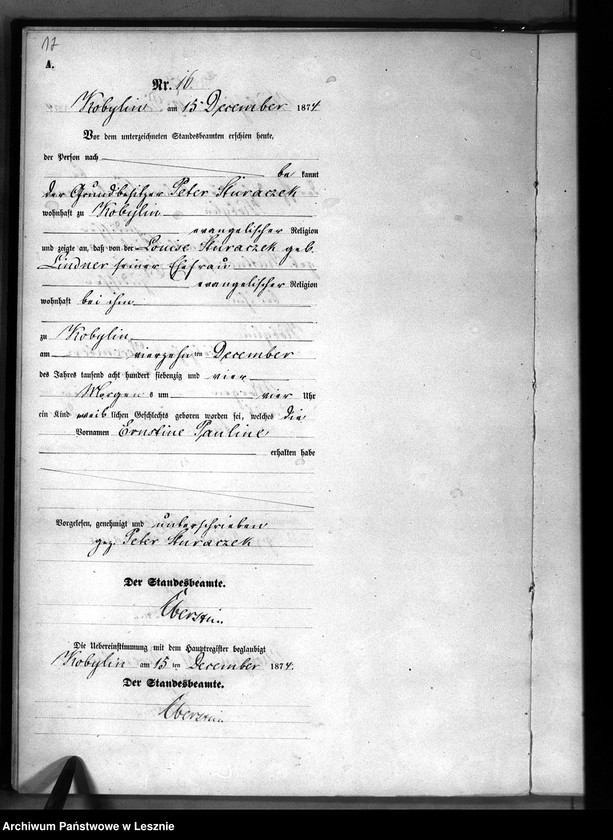 17
A.
Nr. 16
Kobylin am 15 December 1874
Vor dem unterzeichneten Standesbeamten erschien heute,
der Person nach
be kannt
der Grundbesitzer Peter Skuraczek
wohnhaft zu Kobylin
evangelischer Religion
und zeigte an, daß von der Louise Skuraczek geb.
Lindner seiner Ehefrau
evangelischer Religion
wohnhaft bei ihm
zu Kobylin
am vierzehn ten December
des Jahres tausend acht hundert siebenzig und vier
Morgen s um vier Uhr
ein Kind weib lichen Geschlechts geboren worden sei, welches die
Vornamen Ernstine Pauline
erhalten habe
Vorgelesen, genehmigt und unterschrieben
gez. Peter Skuraczek
Der Standesbeamte.
Die Uebereinstimmung mit dem Hauptregister beglaubigt
Kobylin am 15 ten December 1874.
Der Standesbeamte.
Archiwum Państwowe w Lesznie